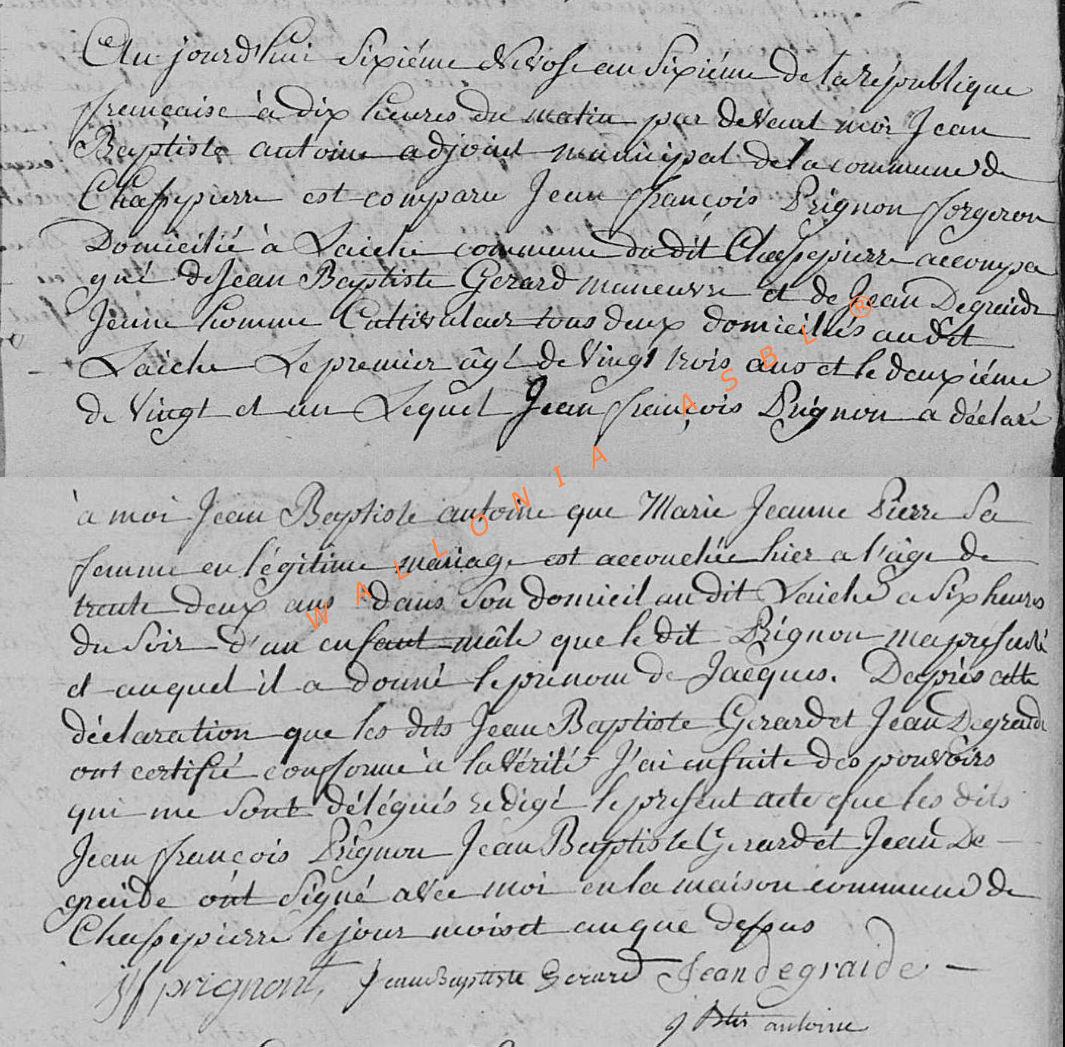 Au jourd'hui Sixiéme Nivose an Sixiéme de la république
française à dix heures du matin par devant moi Jean
Baptiste antoine adjoint municipal de la commune de
Chassepierre est comparu Jean françois Prignon forgeron
Domicilié à Laiche commune du dit Chassepierre accompa
gné de Jean Baptiste Gerard maneuvre et de Jean Degraide
Jeune homme Cultivateur tous deux domiciliés au dit
Laiche Le premier âgé de Vingt trois ans et le deuxiéme
de Vingt et un Lequel Jean françois Prignon a déclaré
à moi Jean Baptiste antoine que Marie Jeanne Pierre Sa
femme en légitime mariage est accouchée hier a l'âge de
trente deux ans dans Son domicil au dit Laiche a Six heures
du Soir d'un enfant mâle que le dit Prignon ma présenté
et auquel il a donné le prenom de Jacques. Daprès cette
déclaration que les dits Jean Baptiste Gerard et Jean Degraide
ont certifié conforme à la Vérité J'ai ensuite des pouvoirs
qui me Sont délégués redigé le présent acte que les dits
Jean françois Prignon Jean Baptiste Gerard et Jean De
graide ont Signé avec moi en la maison commune de
Chassepierre le jour mois et an que dessus
jf prignont, Jean Baptiste Gerard Jean degraide
j Bte antoine
WALLONIA ASBL ®